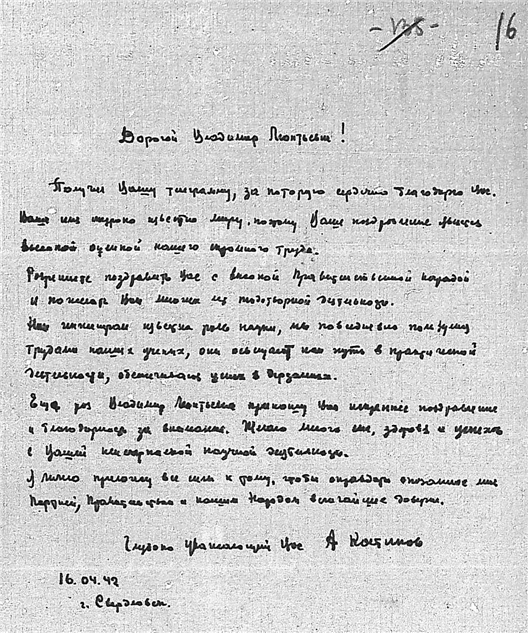 -135- 16
Дорогой Владимир Леонтьевич!
Получил Вашу телеграмму, за которую сердечно благодарю Вас.
Ваше имя широко известно миру, потому Ваше поздравление является
высокой оценкой нашего скромного труда.
Разрешите поздравить Вас с высокой Правительственной наградой
и пожелать Вам многих лет плодотворной деятельности.
Нам инженерам известна роль науки, мы повседневно пользуемся
трудами наших ученых, они освещают нам путь в практической
деятельности, обеспечивают успех в дерзаниях.
Еще раз Владимир Леонтьевич приношу Вам искреннее поздравление
и благодарность за внимание. Желаю много лет, здоровья и успехов
в Вашей научной деятельности.
Я лично приложу все силы к тому, чтобы оправдать оказанное мне
Партией, Правительством и нашим Народом величайшее доверие.
Глубоко уважающий Вас А
16.04.42
г. Свердловск.